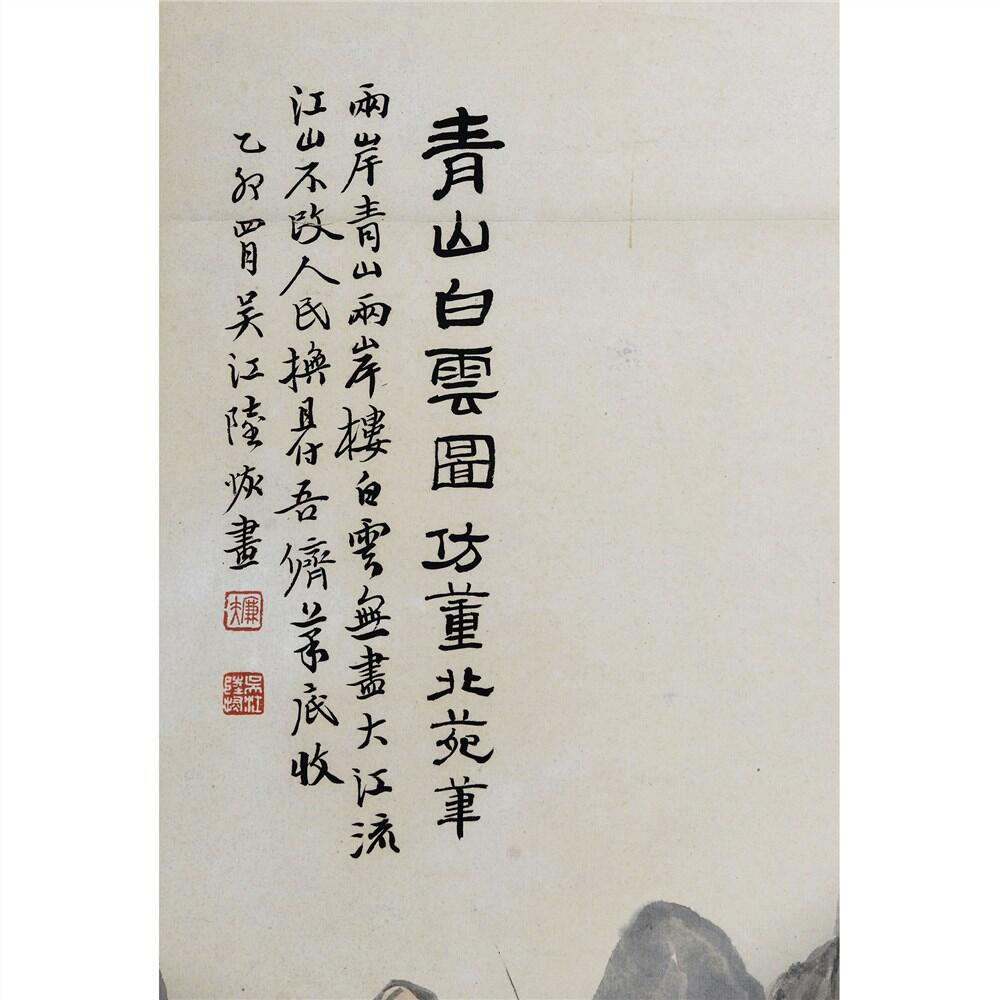 青山白雲圖 仿董北苑筆
兩岸青山兩岸樓白雲無盡大江流
江山不改人民換且付吾儕筆底收
乙卯四月吳江陸恢畫
廉夫
吳江陸恢